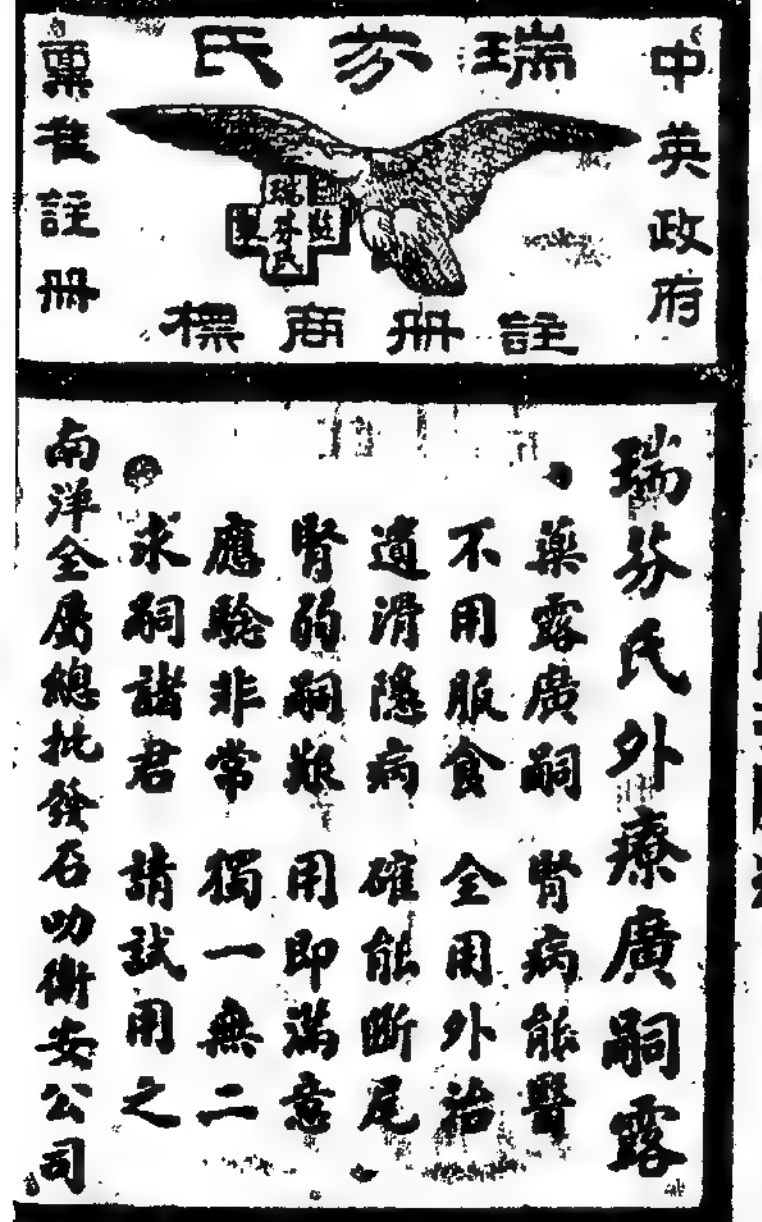 中英政府
瑞芬氏
註册商標
稟准註册
瑞芬氏
瑞芬氏外療廣嗣露
藥露廣嗣 腎病能醫
不用服食 全用外治
遺滑隱病 確能斷尾
腎弱嗣艱 用即滿意
應驗非常 獨一無二
求嗣諸君 請試用之
南洋全屬總批發石叻衛安公司